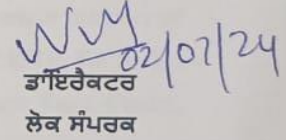 02/07/24
ਡਾਇਰੈਕਟਰ
ਲੋਕ ਸੰਪਰਕ